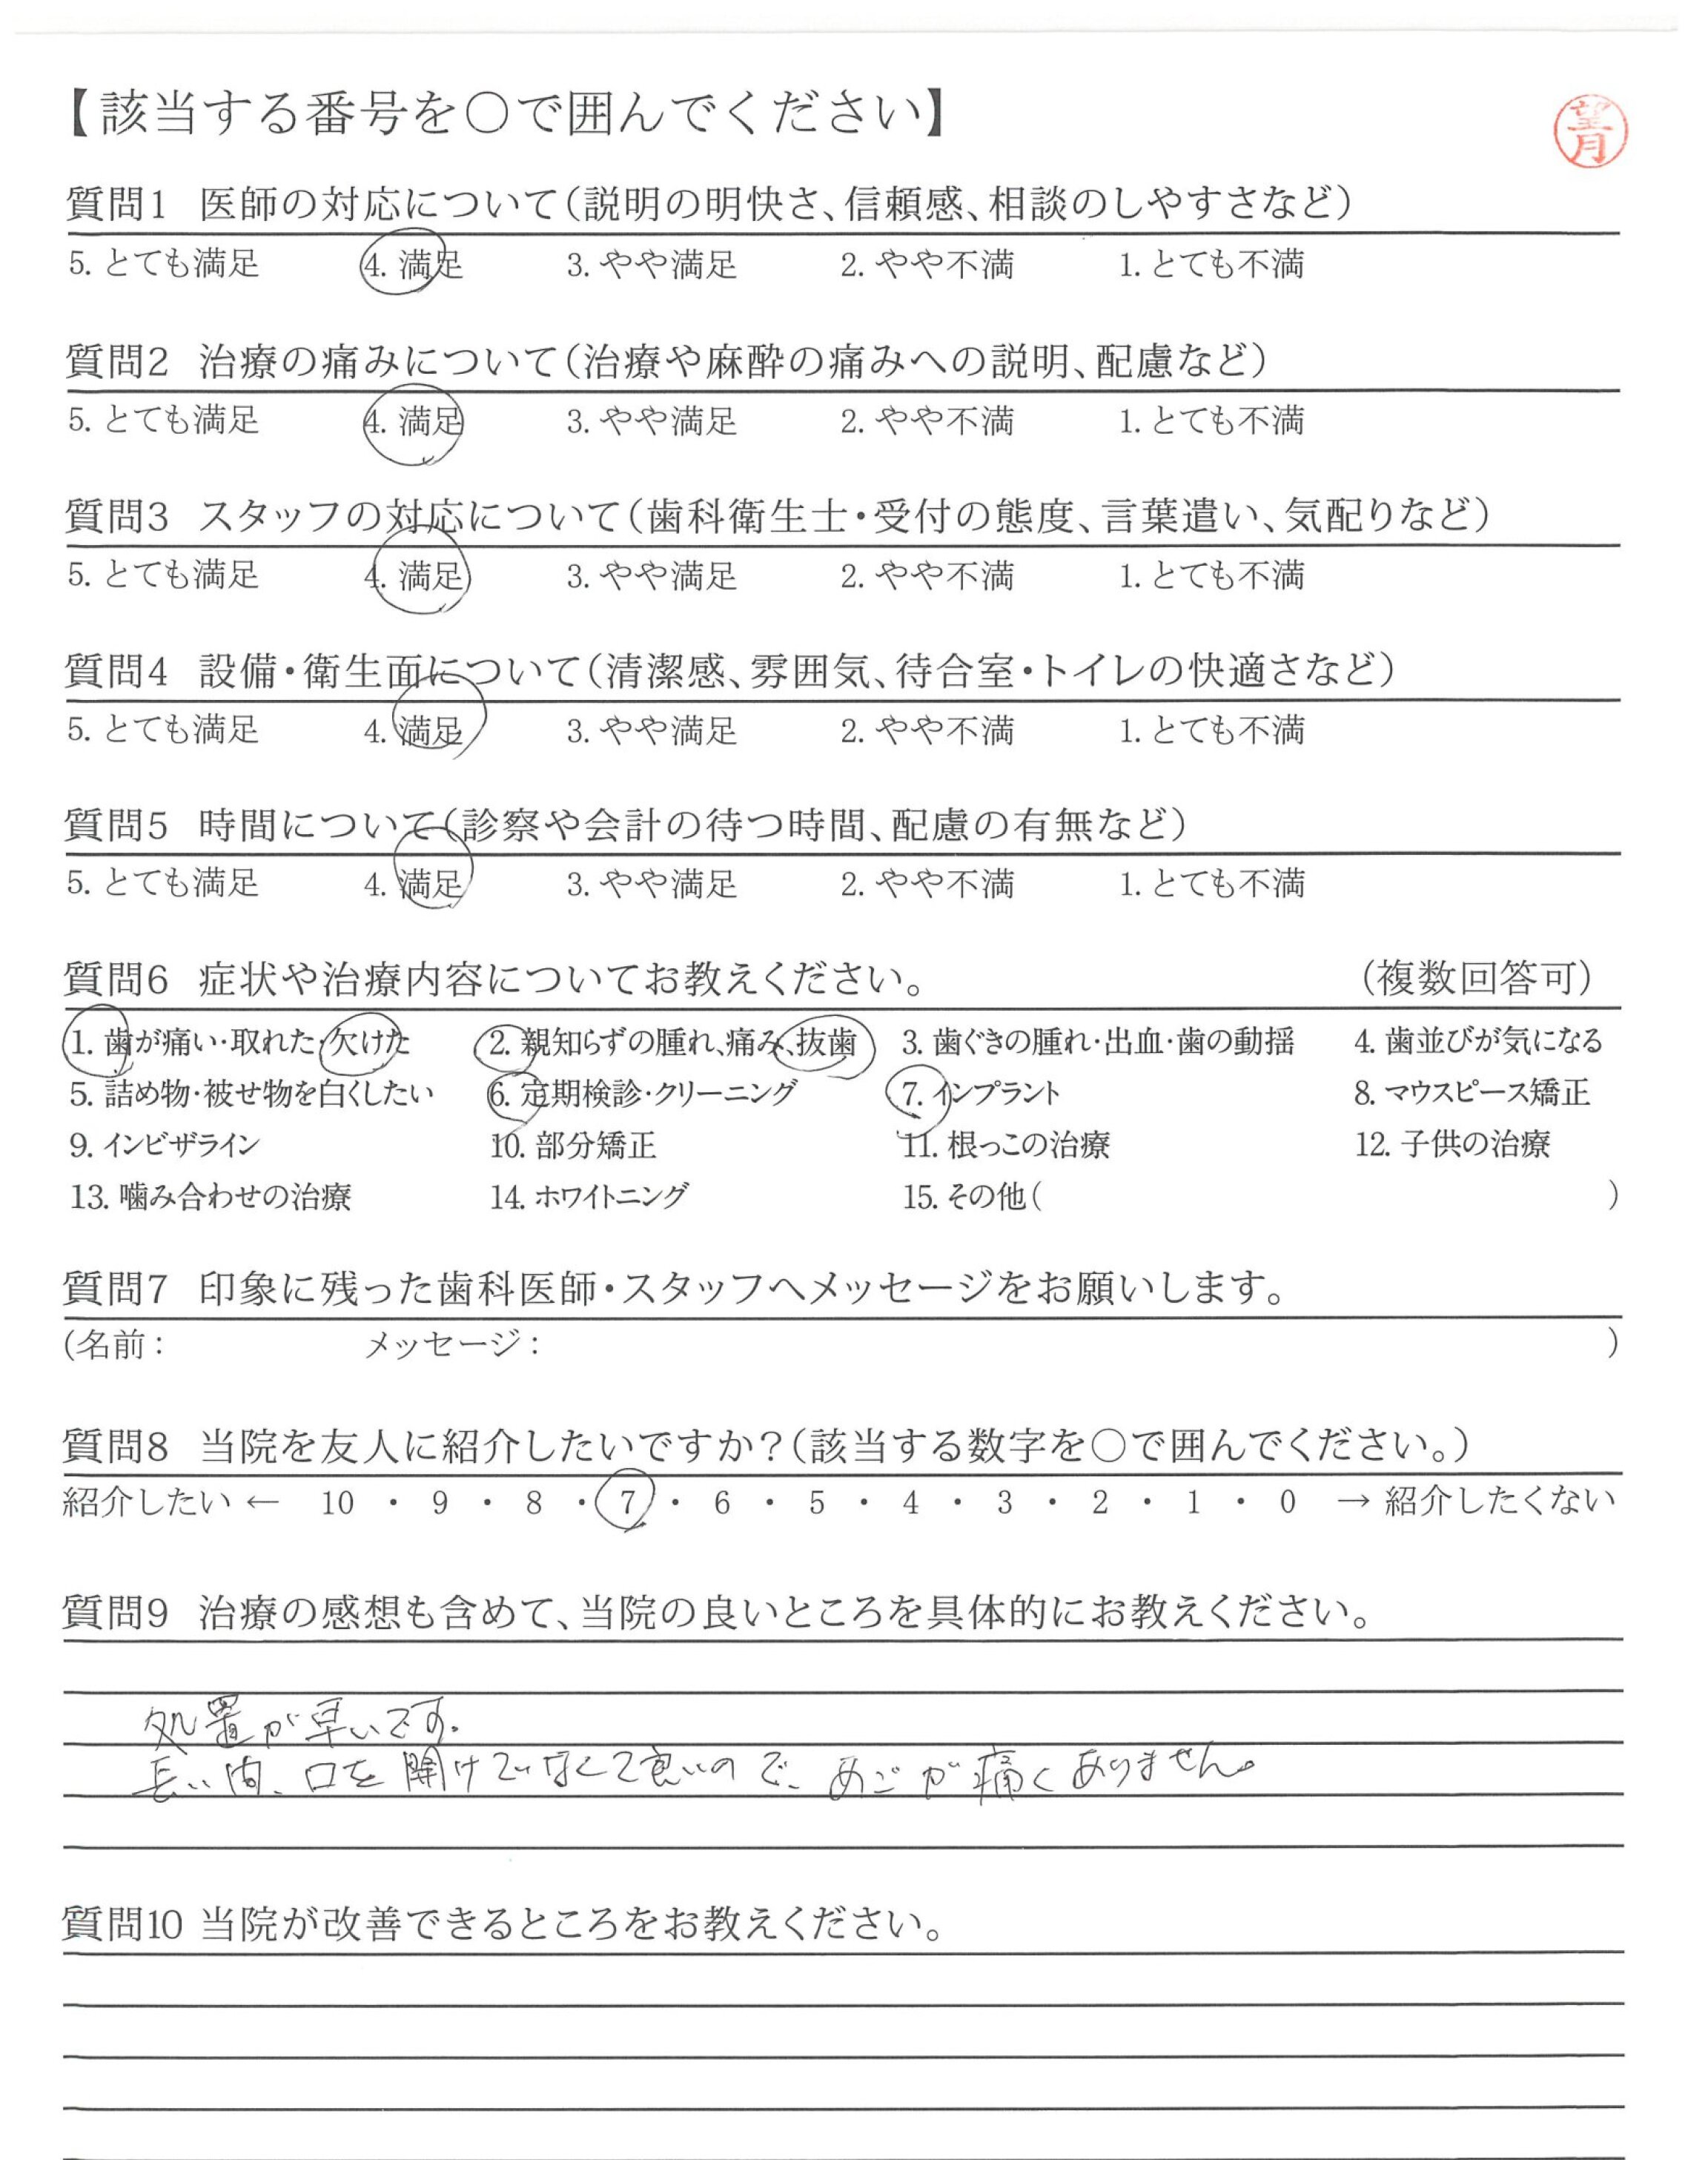 【該当する番号を○で囲んでください】
望月
質問1 医師の対応について(説明の明快さ、信頼感、相談のしやすさなど)
5. とても満足 4. 満足 3. やや満足 2. やや不満 1. とても不満
質問2 治療の痛みについて(治療や麻酔の痛みへの説明、配慮など)
5. とても満足 4. 満足 3. やや満足 2. やや不満 1. とても不満
質問3 スタッフの対応について(歯科衛生士・受付の態度、言葉遣い、気配りなど)
5. とても満足 4. 満足 3. やや満足 2. やや不満 1. とても不満
質問4 設備・衛生面について(清潔感、雰囲気、待合室・トイレの快適さなど)
5. とても満足 4. 満足 3. やや満足 2. やや不満 1. とても不満
質問5 時間について(診察や会計の待つ時間、配慮の有無など)
5. とても満足 4. 満足 3. やや満足 2. やや不満 1. とても不満
質問6 症状や治療内容についてお教えください。 (複数回答可)
1. 歯が痛い・取れた・欠けた 2. 親知らずの腫れ、痛み、抜歯 3. 歯ぐきの腫れ・出血・歯の動揺 4. 歯並びが気になる
5. 詰め物・被せ物を白くしたい 6. 定期検診・クリーニング 7. インプラント 8. マウスピース矯正
9. インビザライン 10. 部分矯正 11. 根っこの治療 12. 子供の治療
13. 噛み合わせの治療 14. ホワイトニング 15. その他( )
質問7 印象に残った歯科医師・スタッフへメッセージをお願いします。
(名前: メッセージ: )
質問8 当院を友人に紹介したいですか?(該当する数字を○で囲んでください。)
紹介したい ← 10 ・ 9 ・ 8 ・ 7 ・ 6 ・ 5 ・ 4 ・ 3 ・ 2 ・ 1 ・ 0 → 紹介したくない
質問9 治療の感想も含めて、当院の良いところを具体的にお教えください。
処置が早いです。
長い間、口を開けていなくて良いので、あごが痛くありません。
質問10 当院が改善できるところをお教えください。